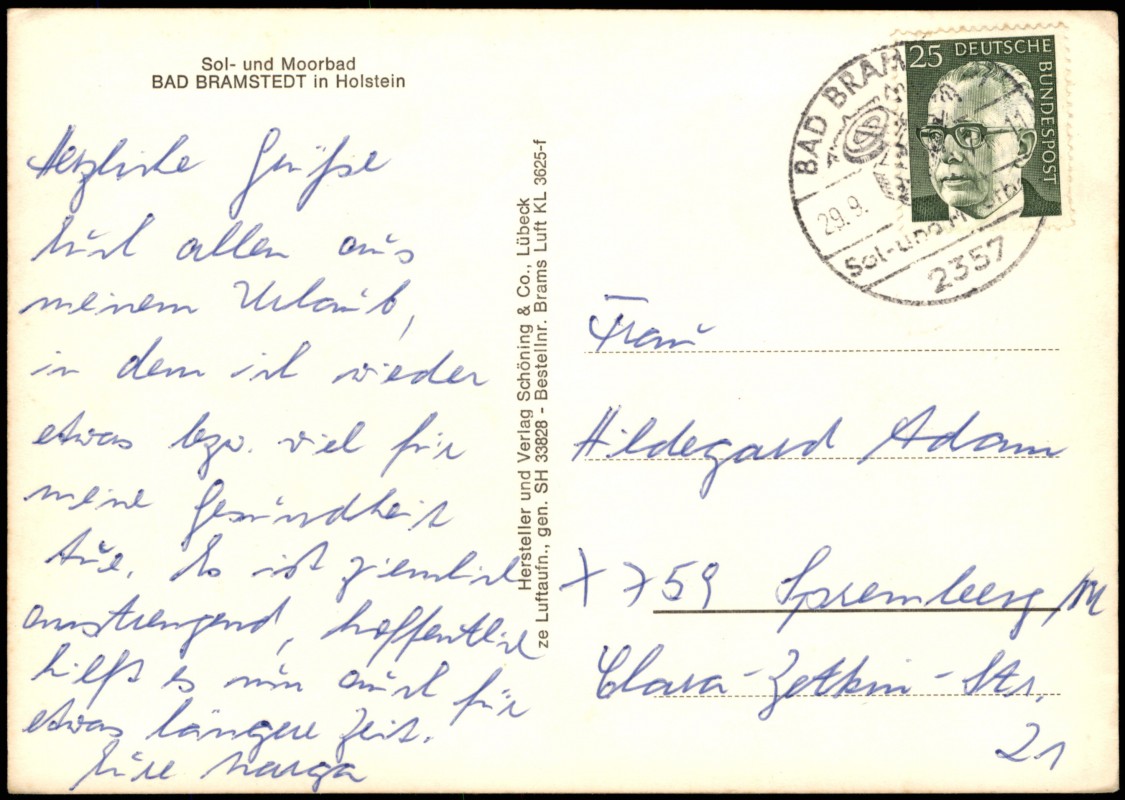 Sol- und Moorbad
BAD BRAMSTEDT in Holstein
Herzliche Grüße
Euch allen aus
meinem Urlaub,
in dem ich wieder
etwas bzw. viel für
meine Gesundheit
tue. Es ist ziemlich
anstrengend, hoffentlich
hilft es nun auch für
etwas längere Zeit.
Eure Marga
Hersteller und Verlag Schöning & Co., Lübeck
ze Luftaufn., gen. SH 33828 - Bestellnr. Brams Luft KL 3625-f
25 DEUTSCHE
BUNDESPOST
BAD BRAM
29.9.
Sol- und Moorb
2357
Frau
Hildegard Adam
X 759 Spremberg
Clara-Zetkin-Str.
21